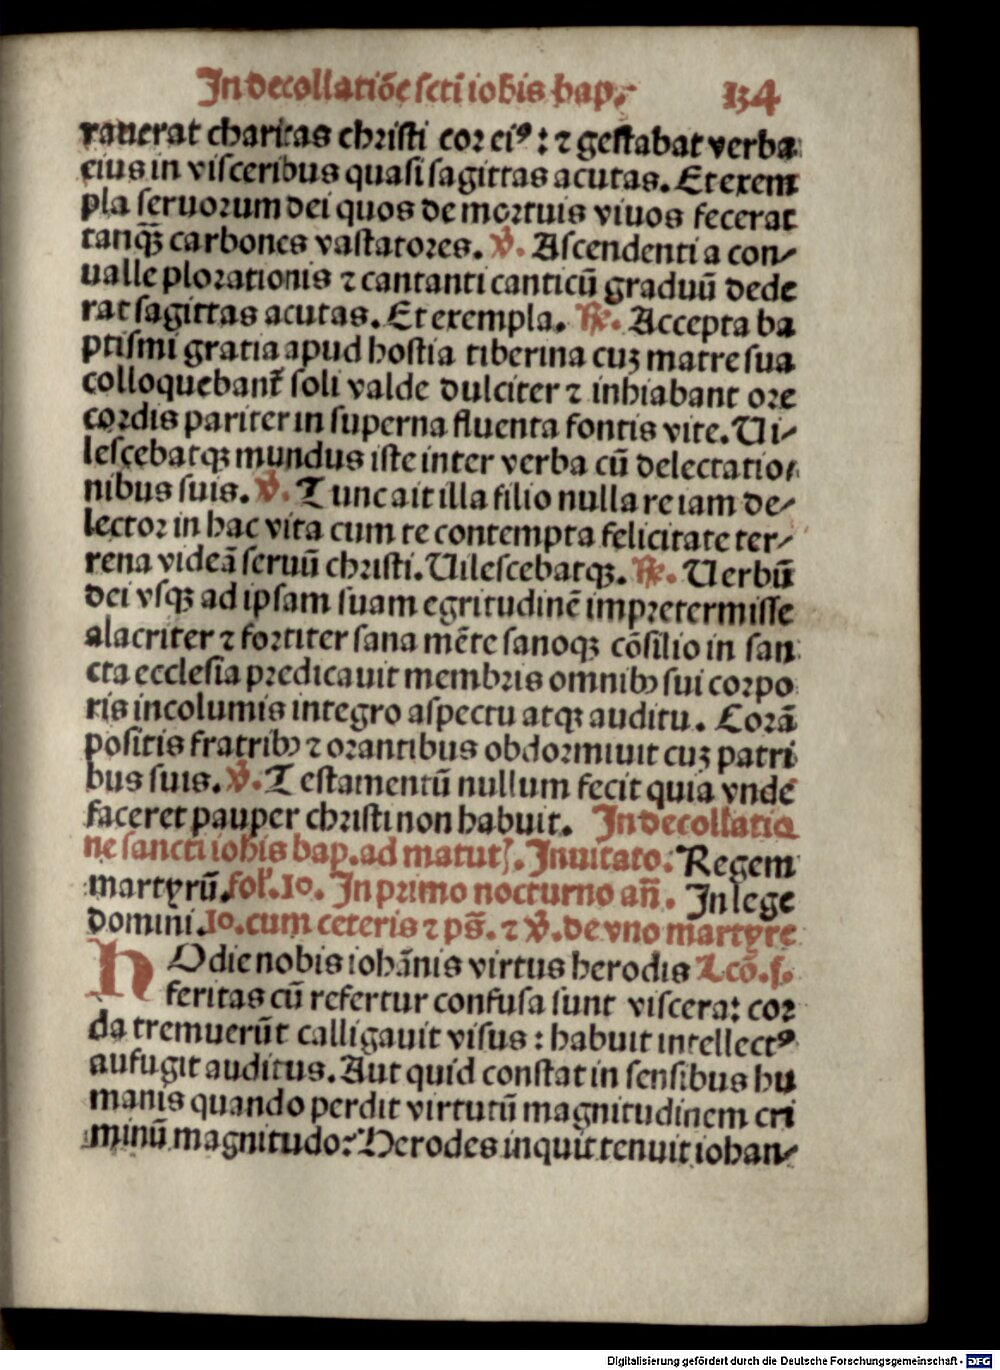 In decollatiõe scti iohis bap. 134
rauerat charitas christi cor eiꝰ: ⁊ gestabat verba
eius in visceribus quasi sagittas acutas. Et exem
pla seruorum dei quos de mortuis viuos fecerat
tanqꝫ carbones vastatores. ℣. Ascendenti a con-
ualle plorationis ⁊ cantanti canticũ graduũ dede
rat sagittas acutas. Et exempla. ℟. Accepta ba
ptismi gratia apud hostia tiberina cuꝫ matre sua
colloquebant᷑ soli valde dulciter ⁊ inhiabant ore
cordis pariter in superna fluenta fontis vite. Ui-
lescebatqꝫ mundus iste inter verba cũ delectatio-
nibus suis. ℣. Tunc ait illa filio nulla re iam de-
lector in hac vita cum te contempta felicitate ter-
rena videã seruũ christi. Uilescebatqꝫ. ℟. Uerbũ
dei vsqꝫ ad ipsam suam egritudinẽ impretermisse
alacriter ⁊ fortiter sana mẽte sanoqꝫ cõsilio in san
cta ecclesia predicauit membris omnibꝰ sui corpo
ris incolumis integro aspectu atqꝫ auditu. Corã
positis fratribꝰ ⁊ orantibus obdormiuit cuꝫ patri
bus suis. ℣. Testamentũ nullum fecit quia vnde
faceret pauper christi non habuit. In decollatio
ne sancti iohis bap. ad matut. Inuitato. Regem
martyrũ. fol. 10. In primo nocturno añ. In lege
domini. 10. cum ceteris ⁊ ps̃. ⁊ ℣. de vno martyre
HOdie nobis iohãnis virtus herodis Lcõ. j.
feritas cũ refertur confusa sunt viscera: cor
da tremuerũt calligauit visus: habuit intellectꝰ
aufugit auditus. Aut quid constat in sensibus hu
manis quando perdit virtutũ magnitudinem cri
minũ magnitudo? Herodes inquit tenuit iohan-
Digitalisierung gefördert durch die Deutsche Forschungsgemeinschaft - DFG